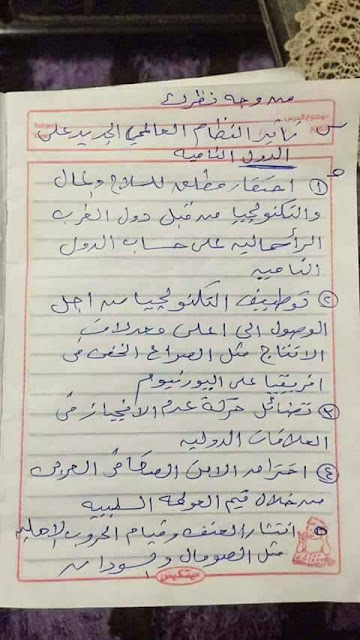 من وجه نظرك
موضوع الدرس
س تأثير النظام العالمي الجديد على
الدول الناميه
ج
① احتقار مطلق للسلاح والمال
والتكنولوجيا من قبل دول الغرب
الرأسماليه على حساب الدول
الناميه
② توظيف التكنولوجيا من اجل
الوصول الى اعلى معدلات
الانتاج مثل الصراع الخفى فى
افريقيا على اليورنيوم
③ تضائل حركة عدم الانحياز فى
العلاقات الدوليه
④ اختراق الامن الثقافى العربى
من خلال قيم العولمة السلبيه
⑤ انتشار العنف وقيام الحروب الاهليه
مثل الصومال والسودان